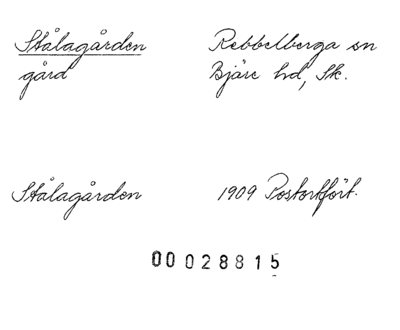 Stålagården
gård
Rebbelberga sn
Bjäre hd, Sk.
Stålagården
1909 Postortfört.
00028815